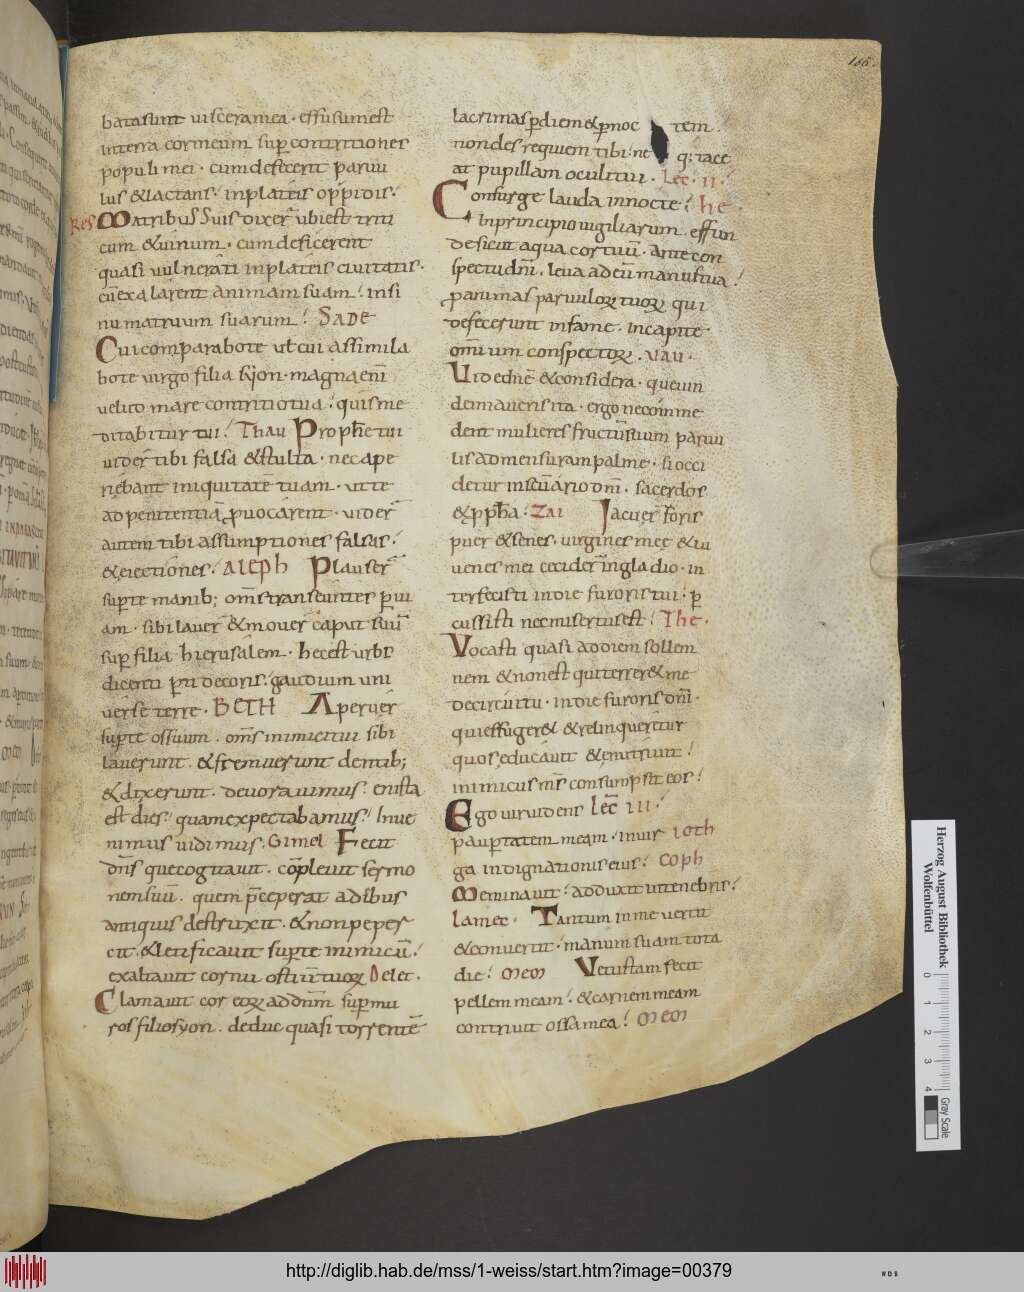 186.
batasunt uiscera mea · effusum est
in terra cor meum sup contritiones
populi mei · cum deficeret paruu
lus & lactans · in plateis oppidis ·
Res Matribus suis dixer ubi est triti
cum & uinum · cum deficerent
quasi uulnerati in plateis ciuitatis ·
cū exalarent animam suam · in si
nu matruum suarum · SADE
Cui comparabo te ut cui assimila
bo te uirgo filia syon · magna enī
uelut mare contritio tua · quis me
ditabitur tui · Thau Prophete tui
uider tibi falsa & stulta · nec ape
riebant iniquitatē tuam · ut te
ad penitentiā puocarent · uider
autem tibi assumptiones falsas ·
& eiectiones · aleph Plauser
sup te manib; om̄s transeuntes p ui
am · sibilauer & mouer caput suū
sup filia hierusalem · hecest urbs
dicenti pfi decoris · gaudium uni
uerse terre · BETH Aperuer
sup te ossuum · om̄s inimici tui sibi
lauerunt · & fremuerunt dentib;
& dixerunt · deuorauimus · en ista
est dies · quam expectabamus · Inue
nimus uidimus · Gimel Fecit
dn̄s que cogitauit · cōpleuit sermo
nem suū · quem pceperat a dibus
antiquis destruxit · & non peper
cit · & letificauit sup te inimicū ·
exaltauit cornu ostiū tuoꝝ Delet ·
Clamauit cor eoꝝ ad dnm̄ sup mu
ros filio syon · deduc quasi torrentē
lacrimas p diem & p noc tem ·
non des requiem tibi · ne q; tace
at pupillam oculi tui · Lec · II ·
Consurge lauda in nocte · he ·
In principio uigiliarum · effun
de sicut aqua cor tuū · ante con
spectu dn̄i · leua ad eū manus tua ·
p animas paruuloꝝ tuoꝝ qui
defecerunt in fame · in capite
omium conspectoꝝ · vau ·
Vide dn̄e & considera · quem
demiaueris ita · ergo ne comme
dent mulieres fructū suum paruu
lis ad mensuram palme · si occi
detur in scūario dn̄i · sacerdos
& ppha · zai Jacuer foris
puer & senes · uirgines mee & iu
uenes mei cecider in gladio · in
terfecisti in die furoris tui · p
cussisti nec misertus est · The ·
Vocasti quasi ad diem sollem
nem & non est qui terrer& me
de circuitu · in die furoris dn̄i ·
qui effuger& & relinqueretur
quos educauit & enutriuit ·
inimicus mr̄ consumpsit eos ·
Ego uir uidens Lēc III ·
paupertatem meam · in uir ioth
ga indignationis eius · coph
Meminauit · adduxit in tenebris ·
lamec · Tantum in me uertit
& conuertit · manum suam tota
die · mem Vetustam fecit
pellem meam · & carnem meam
contriuit ossa mea · mem
Herzog August Bibliothek
Wolfenbüttel
0
1
2
3
4
Gray Scale
http://diglib.hab.de/mss/1-weiss/start.htm?image=00379